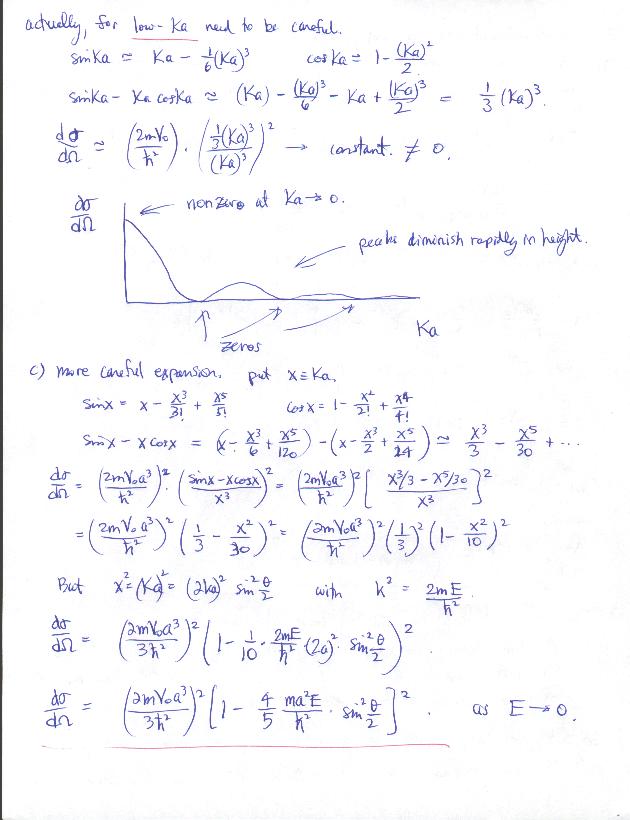 actually, for low-Ka need to be careful.
sinKa ≃ Ka - 1/6(Ka)³    cosKa = 1 - (Ka)²/2
sinKa - Ka cosKa ≃ (Ka) - (Ka)³/6 - Ka + (Ka)³/2 = 1/3 (Ka)³.
dσ/dΩ ≃ (2mV₀/ħ²) · (1/3(Ka)³/(Ka)³)² → constant. ≠ 0.
dσ/dΩ
nonzero at Ka→0.
peaks diminish rapidly in height.
zeros
Ka
c) more careful expansion. put x ≡ Ka,
sinx = x - x³/3! + x⁵/5!    cosx = 1 - x²/2! + x⁴/4!
sinx - x cosx = (x - x³/6 + x⁵/120) - (x - x³/2 + x⁵/24) ≃ x³/3 - x⁵/30 + ...
dσ/dΩ = (2mV₀a³/ħ²)² · (sinx - xcosx/x³)² = (2mV₀a³/ħ²)² [x³/3 - x⁵/30/x³]²
= (2mV₀a³/ħ²)² (1/3 - x²/30)² = (2mV₀a³/ħ²)² (1/3)² (1 - x²/10)²
But x² = (Ka)² = (2ka)² sin² θ/2    with k² = 2mE/ħ².
dσ/dΩ = (2mV₀a³/3ħ²)² (1 - 1/10 · 2mE/ħ² (2a)² · sin² θ/2)²
dσ/dΩ = (2mV₀a³/3ħ²)² [1 - 4/5 ma²E/ħ² · sin² θ/2]². as E→0.